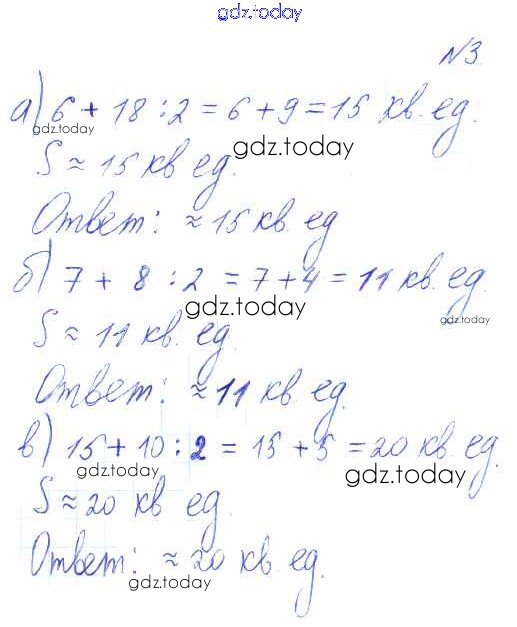 gdz.today
№3
а) 6 + 18 : 2 = 6 + 9 = 15 кв. ед.
gdz.today
gdz.today
S ≈ 15 кв. ед.
Ответ: ≈ 15 кв. ед
б) 7 + 8 : 2 = 7 + 4 = 11 кв. ед.
gdz.today
gdz.today
S ≈ 11 кв. ед.
Ответ: ≈ 11 кв. ед.
в) 15 + 10 : 2 = 15 + 5 = 20 кв. ед.
gdz.today
gdz.today
S ≈ 20 кв. ед.
Ответ: ≈ 20 кв. ед.
gdz.today